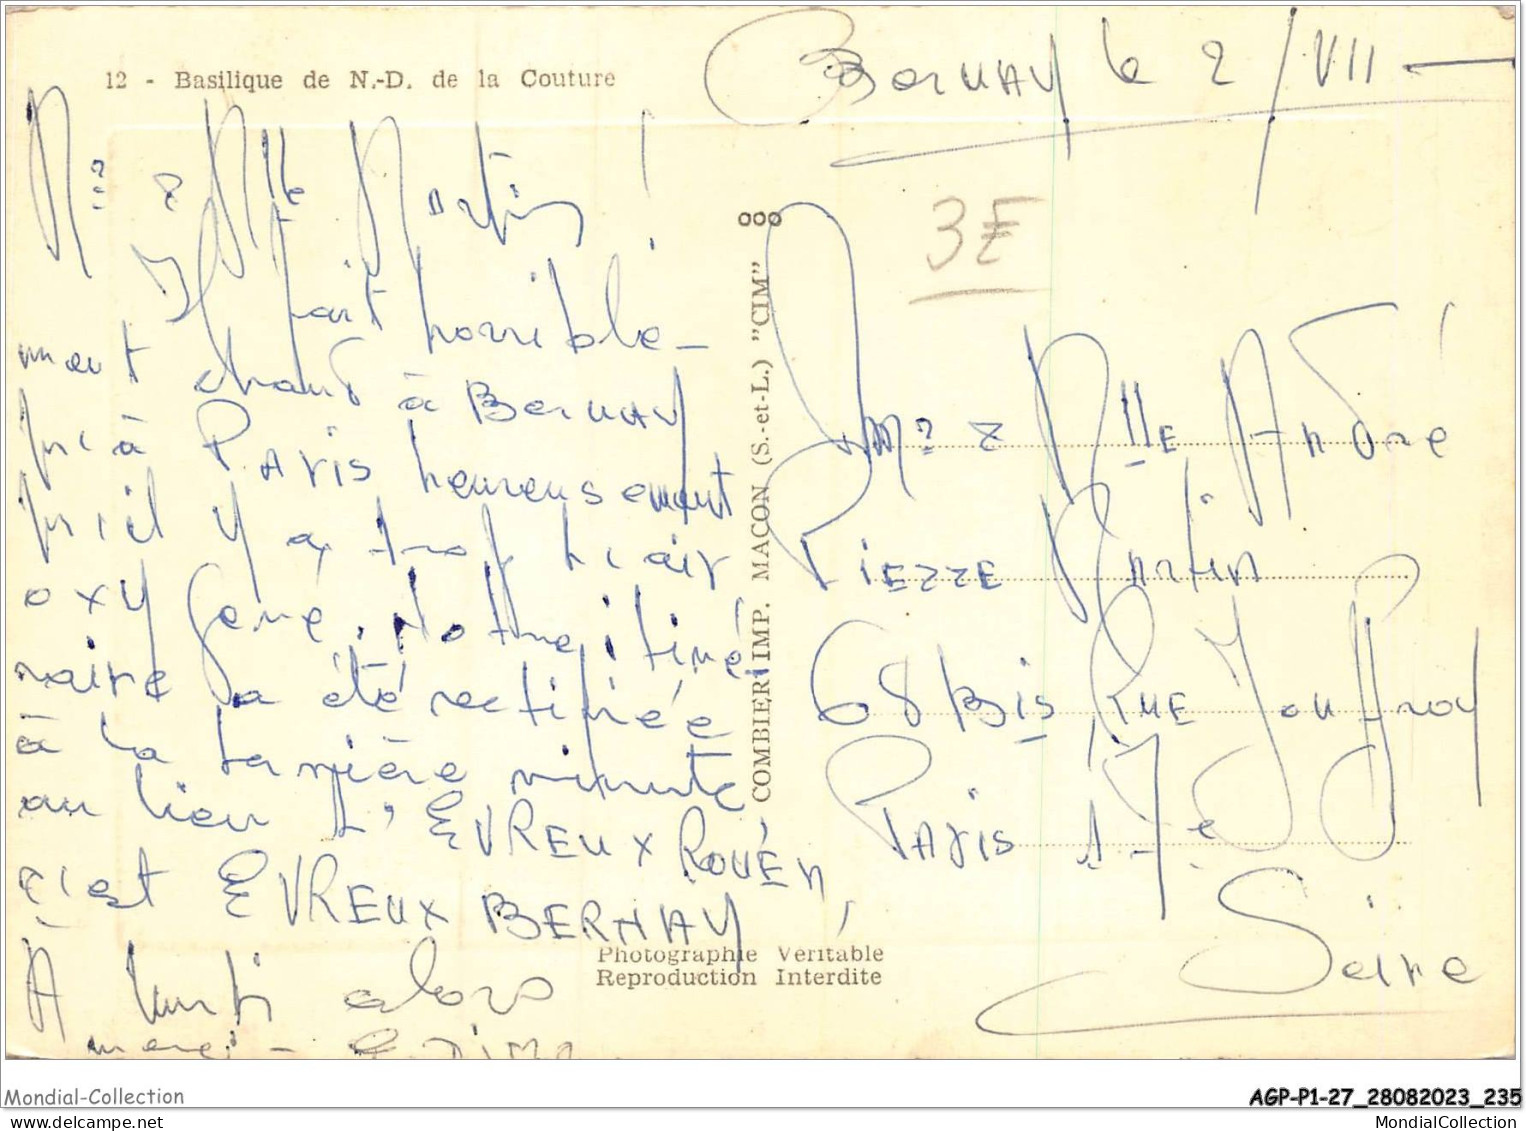 12 - Basilique de N.-D. de la Couture
Bernay le 2/VII
Mr & Mlle Martin !
Il fait horrible-
ment chaud à Bernay
qu'à Paris heureusement
qu'il y a trop d'air
oxygene. Notre itiné-
raire a été rectifiée
à la dernière minute
au lieu d'EVREUX ROUEN,
c'est EVREUX BERNAY
A lundi alors
merci -
000
3E
COMBIER IMP. MACON (S.-et-L.) "CIM"
Mr & Mlle André
Pierre Martin
68 Bis Rue Jouffroy
Paris 17e
Seine
Photographie Véritable
Reproduction Interdite
Mondial-Collection
AGP-P1-27_28082023_235
MondialCollection.com
MondialCollection